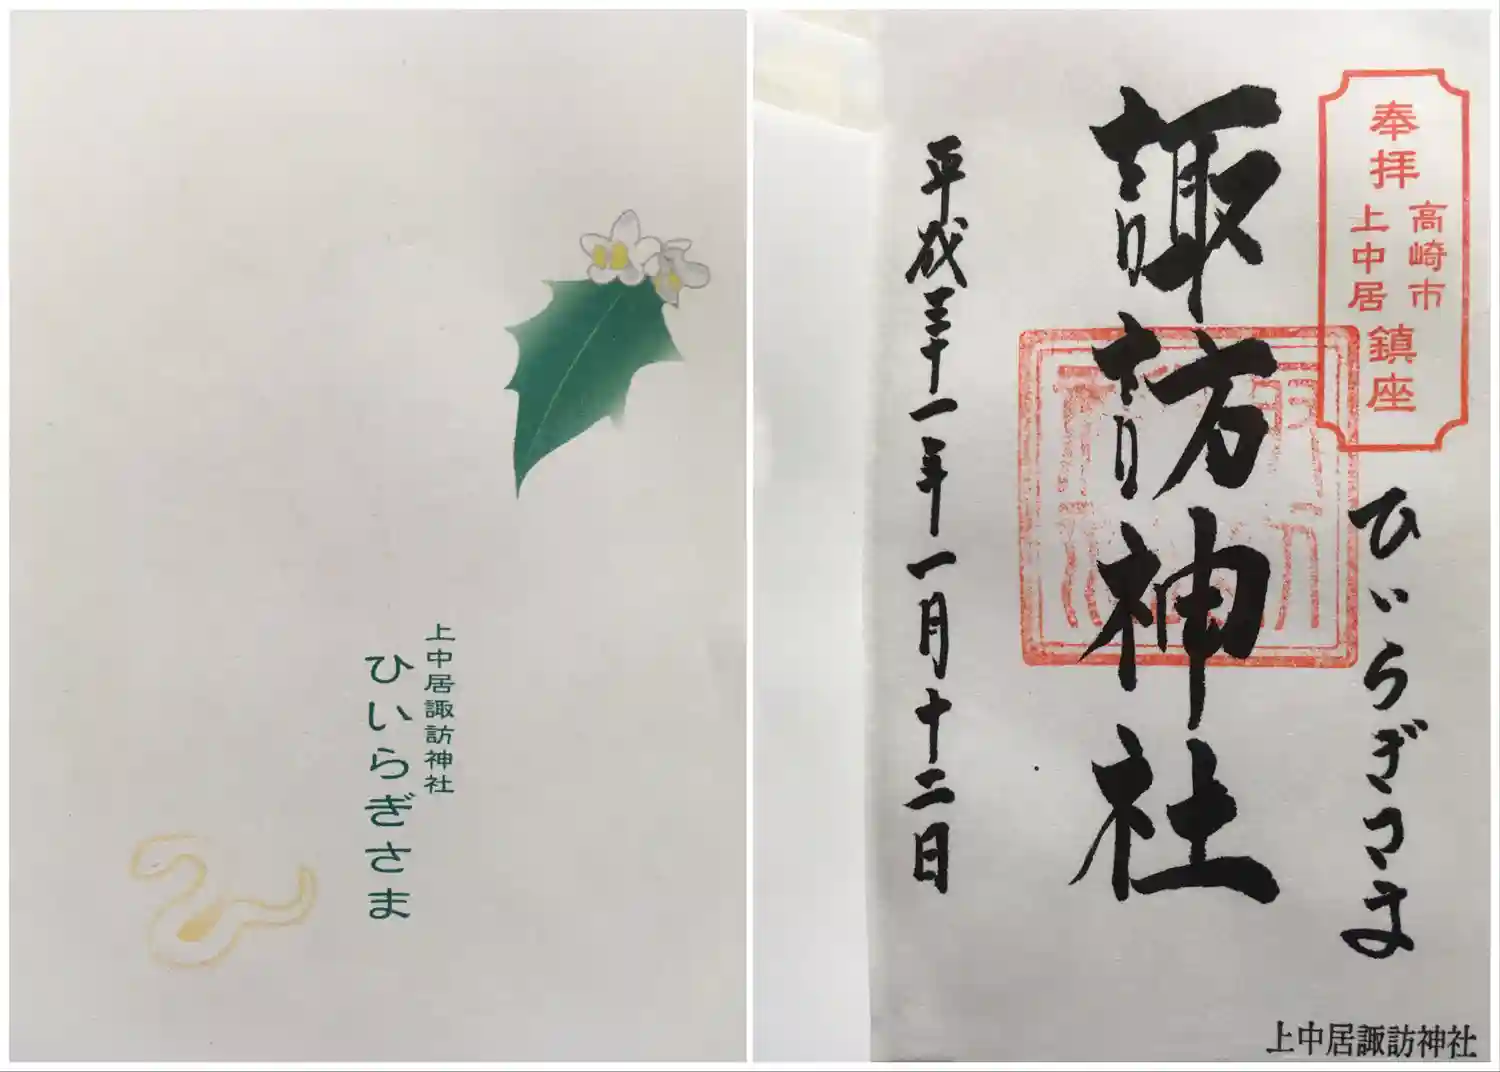 上中居諏訪神社
ひいらぎさま
奉拝
高崎市
上中居
鎮座
ひいらぎさま
諏訪神社
平成三十一年一月十二日
上中居諏訪神社